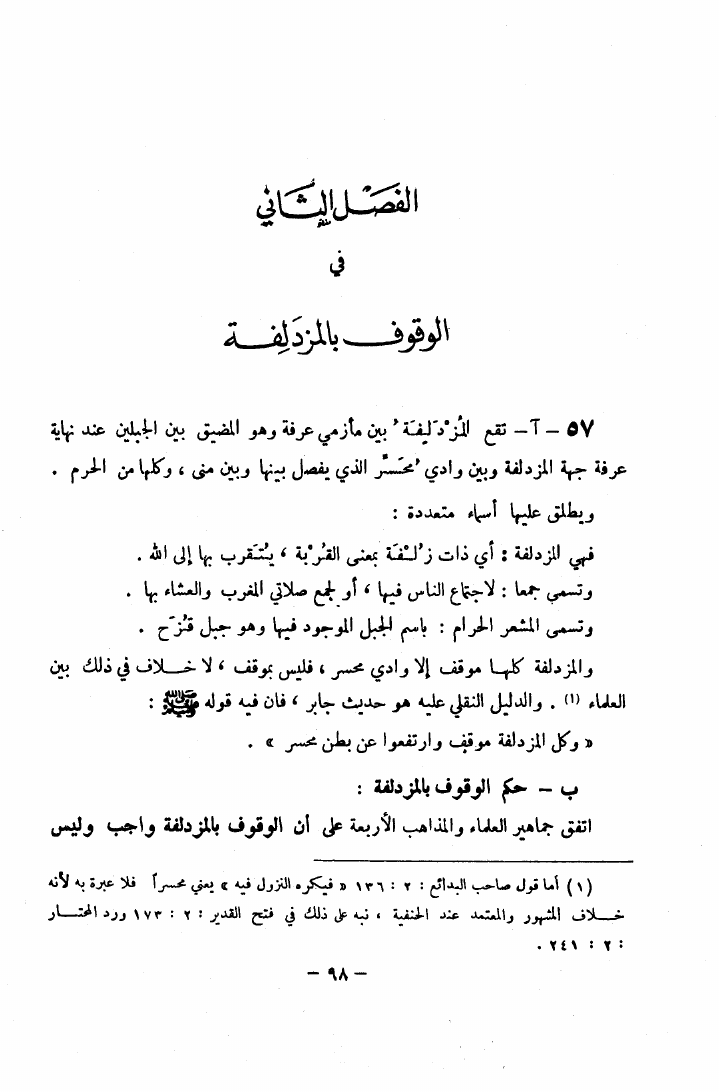 الفصل الثاني
في
الوقوف بالمزدَلِفة
٥٧ – آ – تقع المُزْدَلِفَةُ بين مأزمي عرفة وهو المضيق بين الجبلين عند نهاية
عرفة جهة المزدلفة وبين وادي مُحَسِّر الذي يفصل بينها وبين منى ، وكلها من الحرم .
ويطلق عليها أسماء متعددة :
فهي المزدلفة : أي ذات زُلْفَة بمعنى القُرْبة ، يُتَقرب بها إلى الله .
وتسمى جمعا : لاجتماع الناس فيها ، أو لجمع صلاتي المغرب والعشاء بها .
وتسمى المشعر الحرام : باسم الجبل الموجود فيها وهو جبل قُزَح .
والمزدلفة كلها موقف إلا وادي محسر ، فليس بموقف ، لا خلاف في ذلك بين
العلماء (١) . والدليل النقلي عليه هو حديث جابر ، فان فيه قوله ﷺ :
« وكل المزدلفة موقف وارتفعوا عن بطن محسر » .
ب – حكم الوقوف بالمزدلفة :
اتفق جماهير العلماء والمذاهب الأربعة على أن الوقوف بالمزدلفة واجب وليس
(١) أما قول صاحب البدائع : ٢ : ١٣٦ « فيكره النزول فيه » يعني محسراً فلا عبرة به لأنه
خلاف المشهور والمعتمد عند الحنفية ، نبه على ذلك في فتح القدير : ٢ : ١٧٣ ورد المحتار
: ٢ : ٢٤١ .
– ٩٨ –